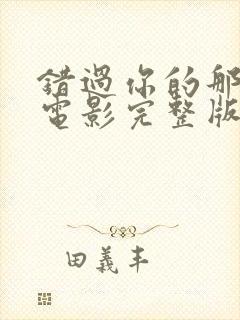 錯過你的那
電影完整版
田義丰